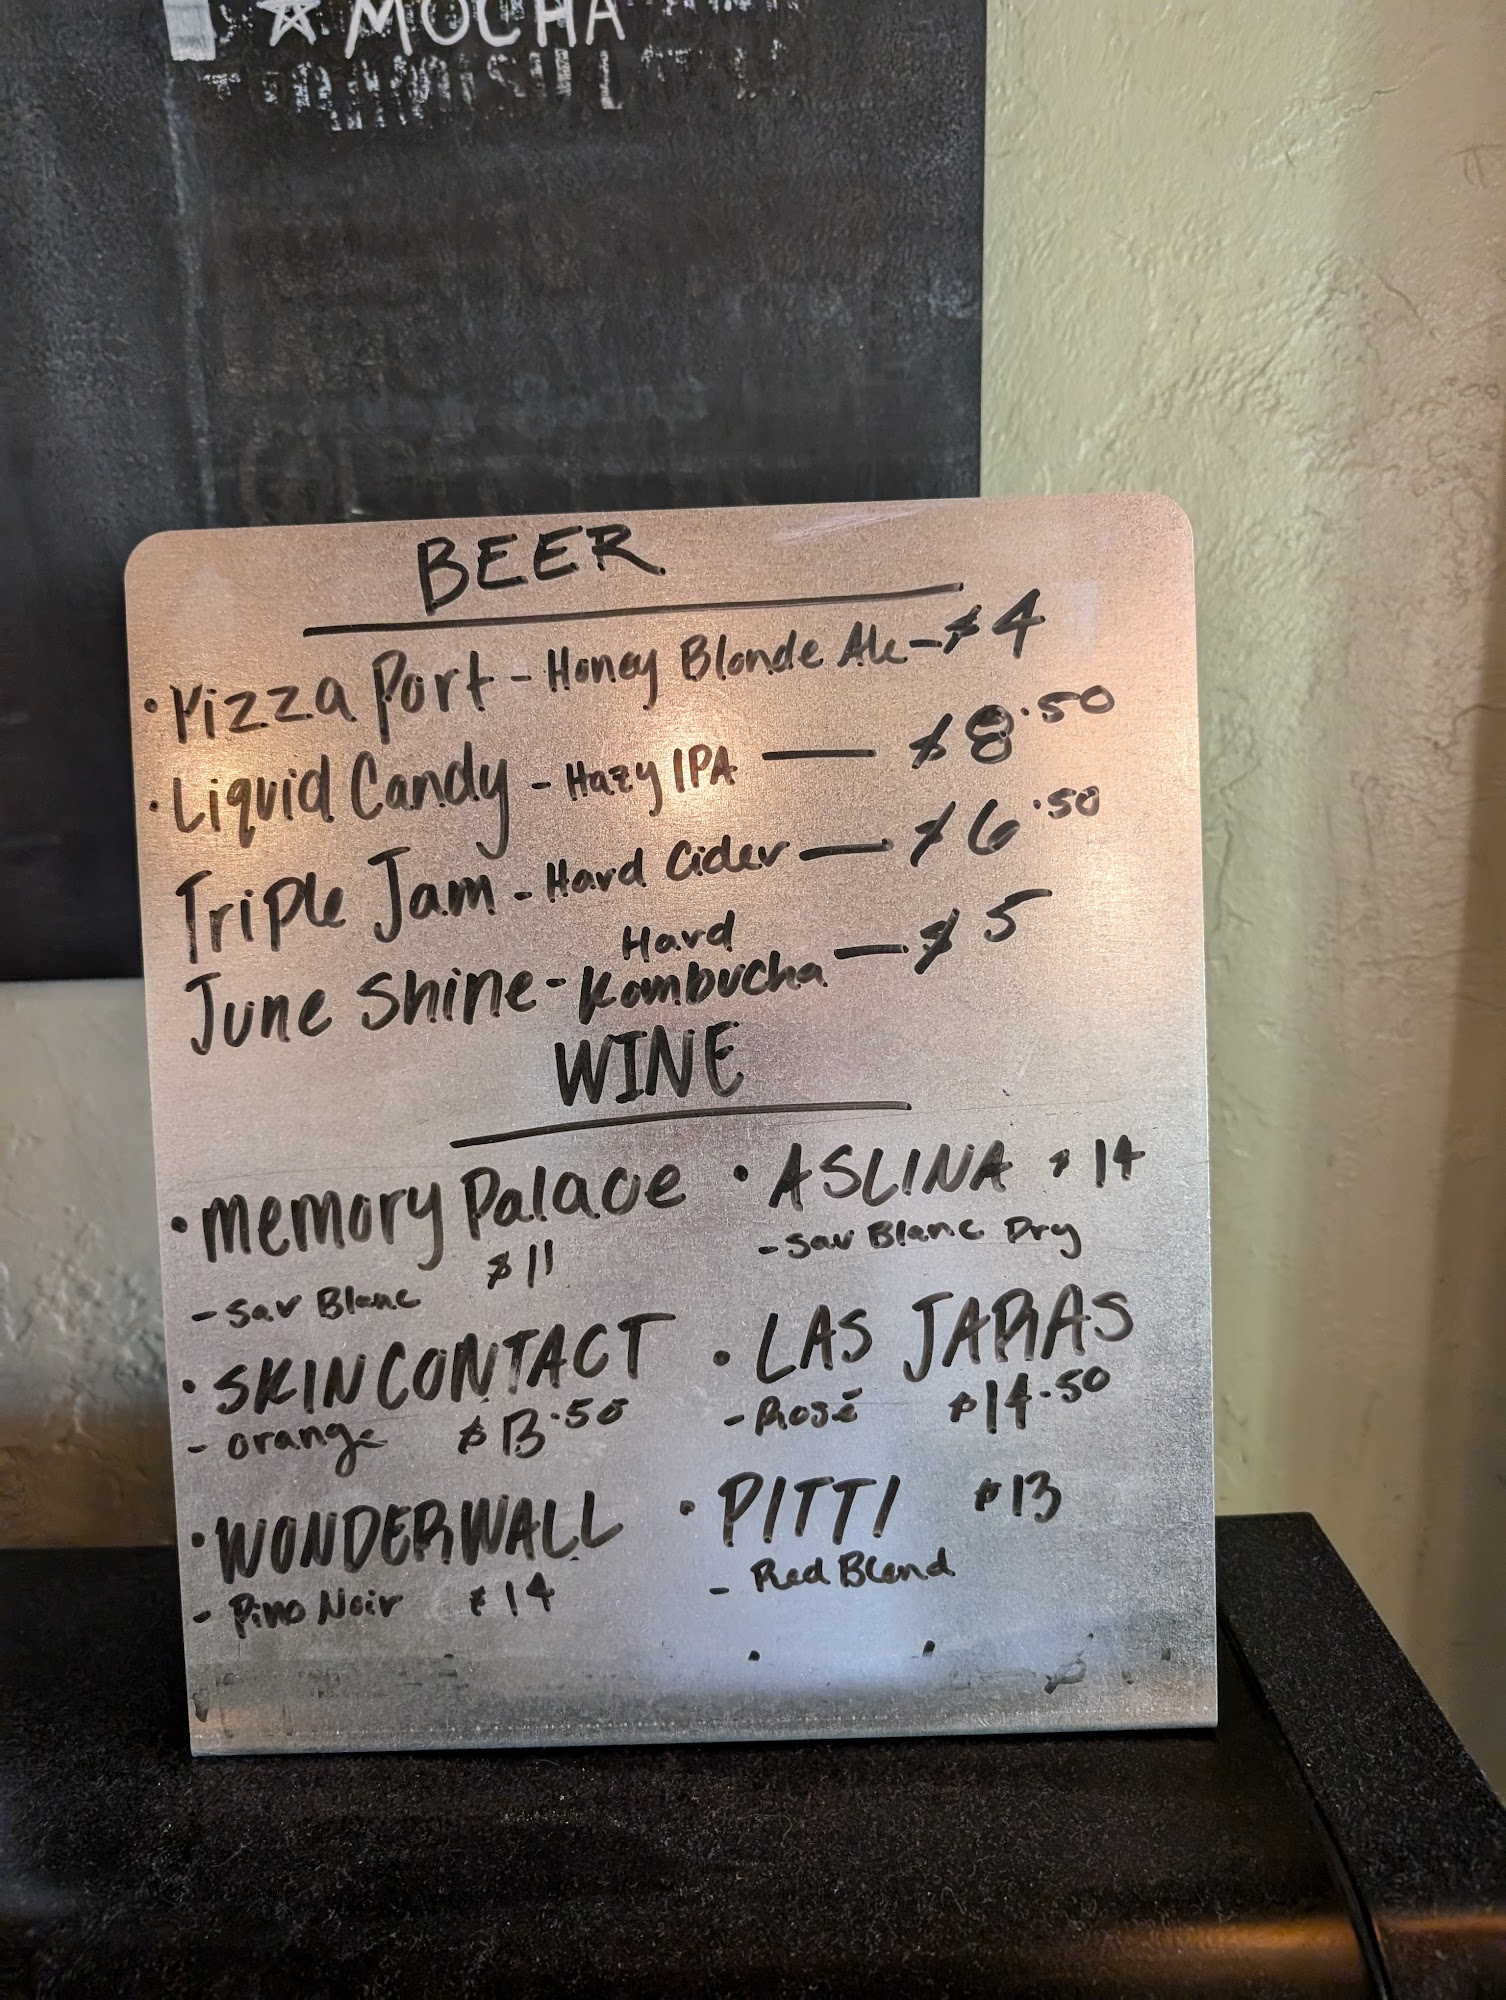 ☆ MOCHA
BEER
• Pizza Port - Honey Blonde Ale - $4
• Liquid Candy - Hazy IPA — $8.50
Triple Jam - Hard Cider — $6.50
June Shine - Hard Kombucha — $5
WINE
• Memory Palace
$11
- Sav Blanc
• SKINCONTACT
- orange $13.50
• WONDERWALL
- Pino Noir $14
• ASLINA $14
- Sav Blanc Dry
• LAS JARAS
- Rosé $14.50
• PITTI $13
- Red Blend